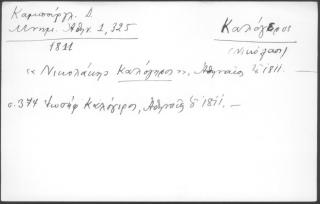 Καμπούρογλ. Δ.
Μνημ. Αθην. 1, 325
1811
Καλόγερος
(Νικόλαος)
"Νικολάκης Καλόγηρος", Αθηναίος το 1811. —
σ. 374 Ιωσήφ Καλόγερος, Αθηναίος το 1811. —